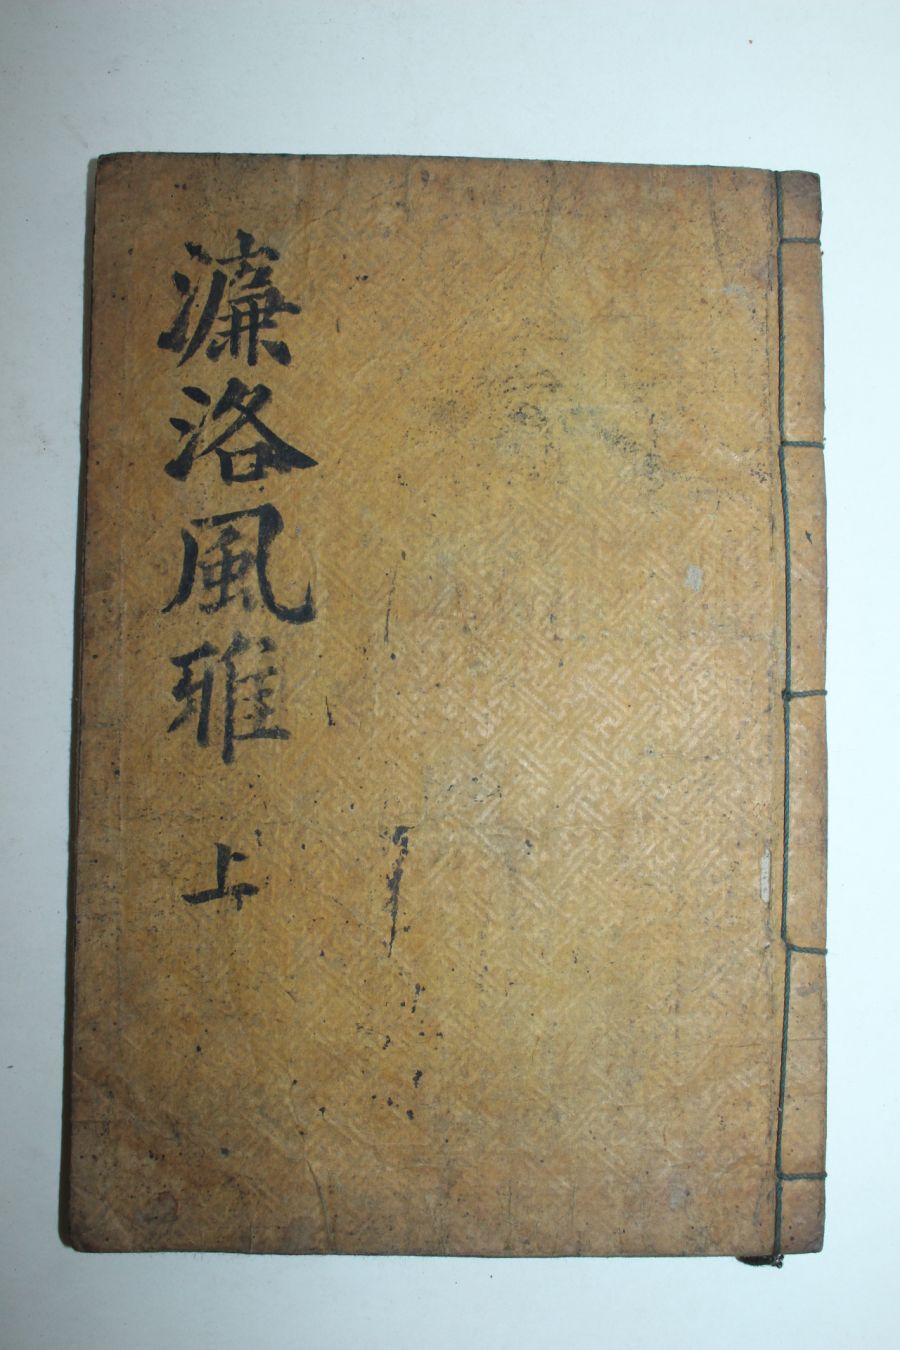 濂洛風雅 上